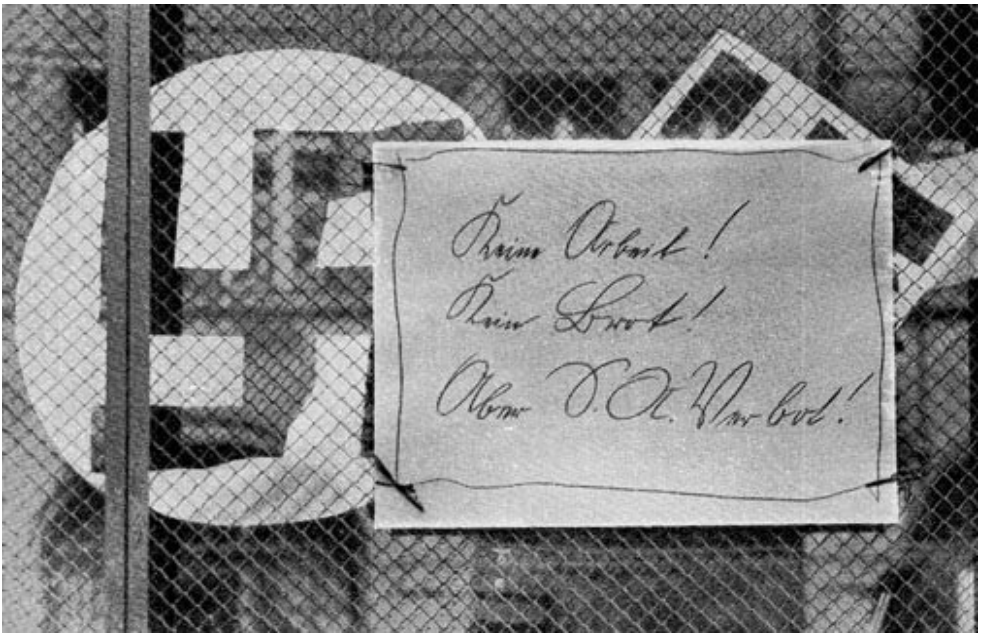 Keine Arbeit!
Kein Brot!
Aber S.A. Verbot!